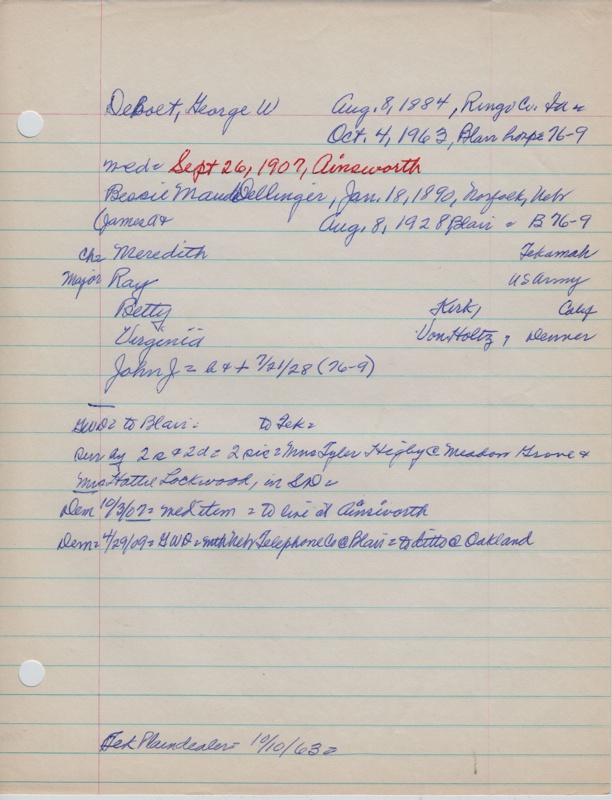 DeBoet, George W Aug. 8, 1884, Ringo Co. Ia =
Oct. 4, 1963, Blair hosp = 76-9
med = Sept 26, 1907, Ainsworth
Bessie Maud Dellinger, Jan. 18, 1890, Norfolk, Nebr
(James A & Aug. 8, 1928 Blair = B 76-9
Ch = Meredith Tekamah
Major Ray US Army
Betty Kirk, Calif
Virginia Von Holtz, Denver
John J = b & + 7/21/28 (76-9)
GWD = to Blair = to Tek =
sur by 2 s & 2 d = 2 sis = Mrs Tyler Higby @ Meadow Grove &
Mrs Hattie Lockwood, in SD =
Dem 10/3/07 = med item = to live at Ainsworth
Dem = 4/29/09 = GWD = with Nebr Telephone Co @ Blair = to ditto @ Oakland
Tek Plaindealer = 10/10/63 =